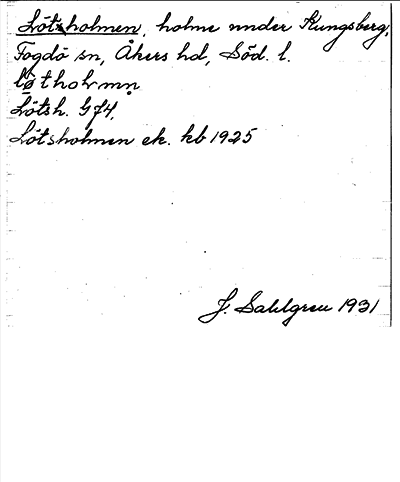 Lötsholmen, holme under Kungsberg,
Fogdö sn, Åkers hd, Söd. l.
Lötsh. G74,
Lötsholmen ek. kb 1925
J. Sahlgren 1931